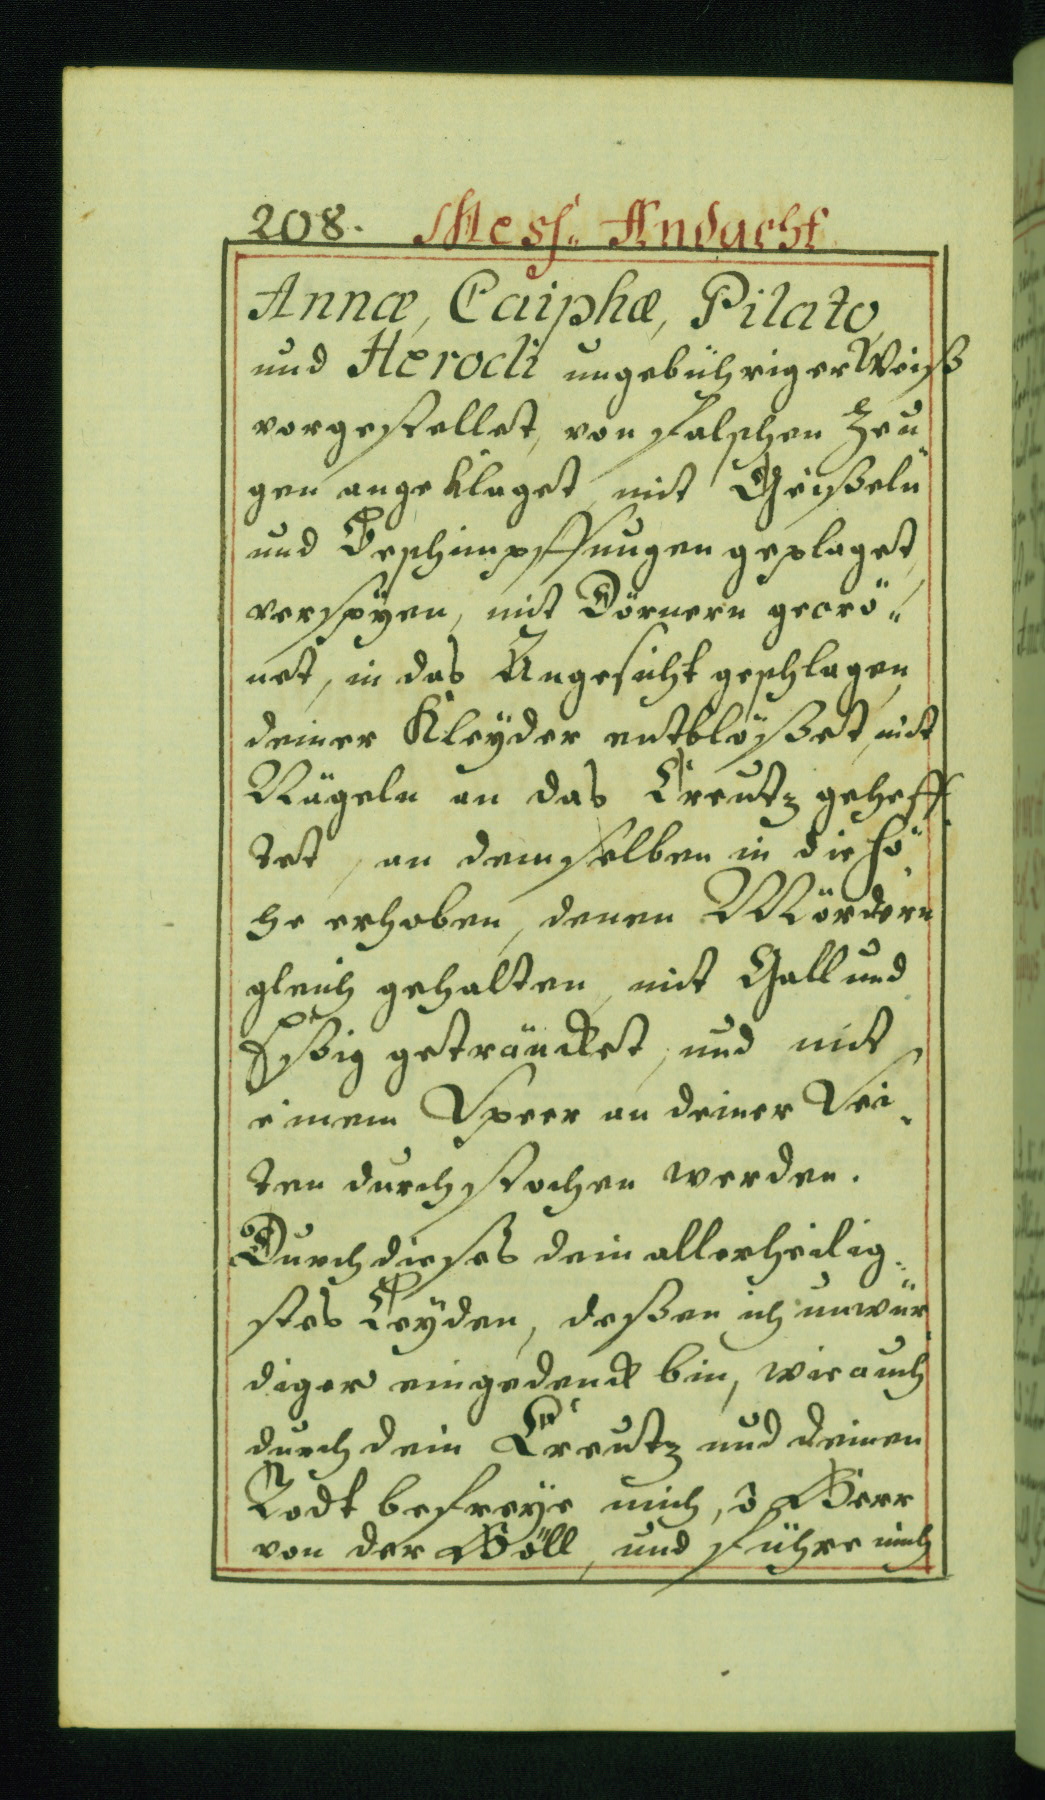 208. Mess- Andacht
Annæ, Caiphæ, Pilato,
und Herodi ungebühriger Weiß
vorgestellet, von falschen Zeu-
gen angeklaget, mit Geißeln
und Beschimpffungen geplaget,
verspÿen, mit Dörnern gecrö-
net, in das Angesicht geschlagen,
deiner Kleÿder entblößet, mit
Nägeln an das Creutz geheff-
tet, an demselben in die Hö-
he erhoben, denen Mördern
gleich gehalten, mit Gall und
Eßig geträncket, und mit
einem Speer an deiner Sei-
ten durchstochen werden.
Durch dieses dein allerheilig-
stes Leÿden, deßen ich unwür-
diger eingedenck bin, wie auch
durch dein Creutz und deinen
Todt befreÿe mich, ô Herr
von der Höll, und führe mich